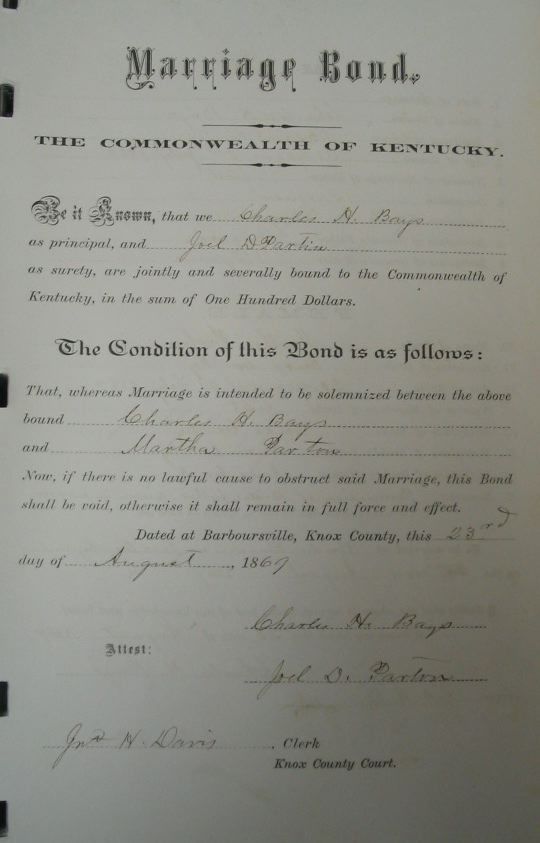 Marriage Bond.
THE COMMONWEALTH OF KENTUCKY.
Be it Known, that we Charles H. Bays
as principal, and Joel D Partin
as surety, are jointly and severally bound to the Commonwealth of
Kentucky, in the sum of One Hundred Dollars.
The Condition of this Bond is as follows:
That, whereas Marriage is intended to be solemnized between the above
bound Charles H. Bays
and Martha Parton
Now, if there is no lawful cause to obstruct said Marriage, this Bond
shall be void, otherwise it shall remain in full force and effect.
Dated at Barboursville, Knox County, this 23rd
day of August, 1869
Charles H. Bays
Attest:
Joel D. Parton
Jno H. Davis, Clerk
Knox County Court.